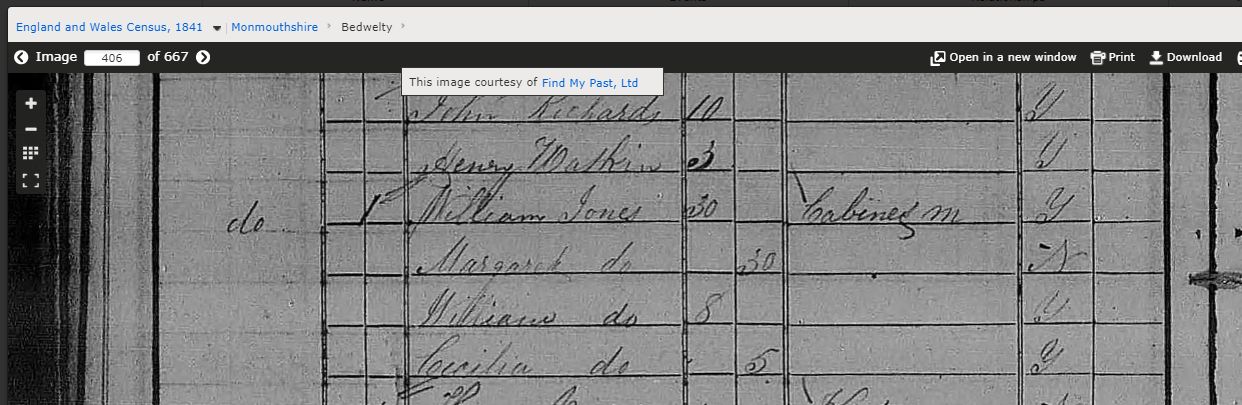 England and Wales Census, 1841 Monmouthshire Bedwelty
Image 406 of 667 Open in a new window Print Download
This image courtesy of Find My Past, Ltd
John Richards 10 Y
Henry Watkin 3 Y
do 1 William Jones 30 Cabinet m Y
Margaret do 30 N
William do 8 Y
Cecilia do 5 Y